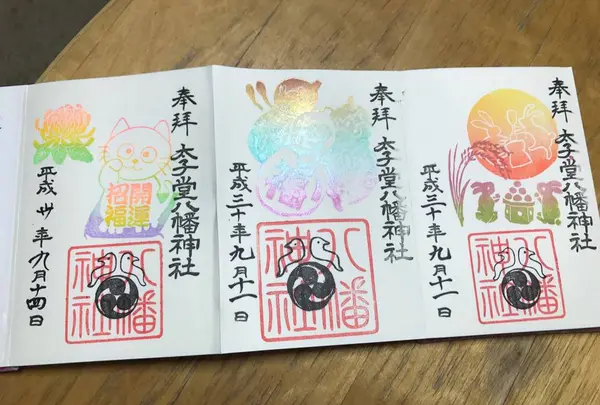 奉拝 太子堂八幡神社
八幡
神社
平成三十年九月十一日
奉拝 太子堂八幡神社
八幡
神社
平成三十年九月十一日
奉拝 太子堂八幡神社
開運
招福
八幡
神社
平成卅年九月十四日